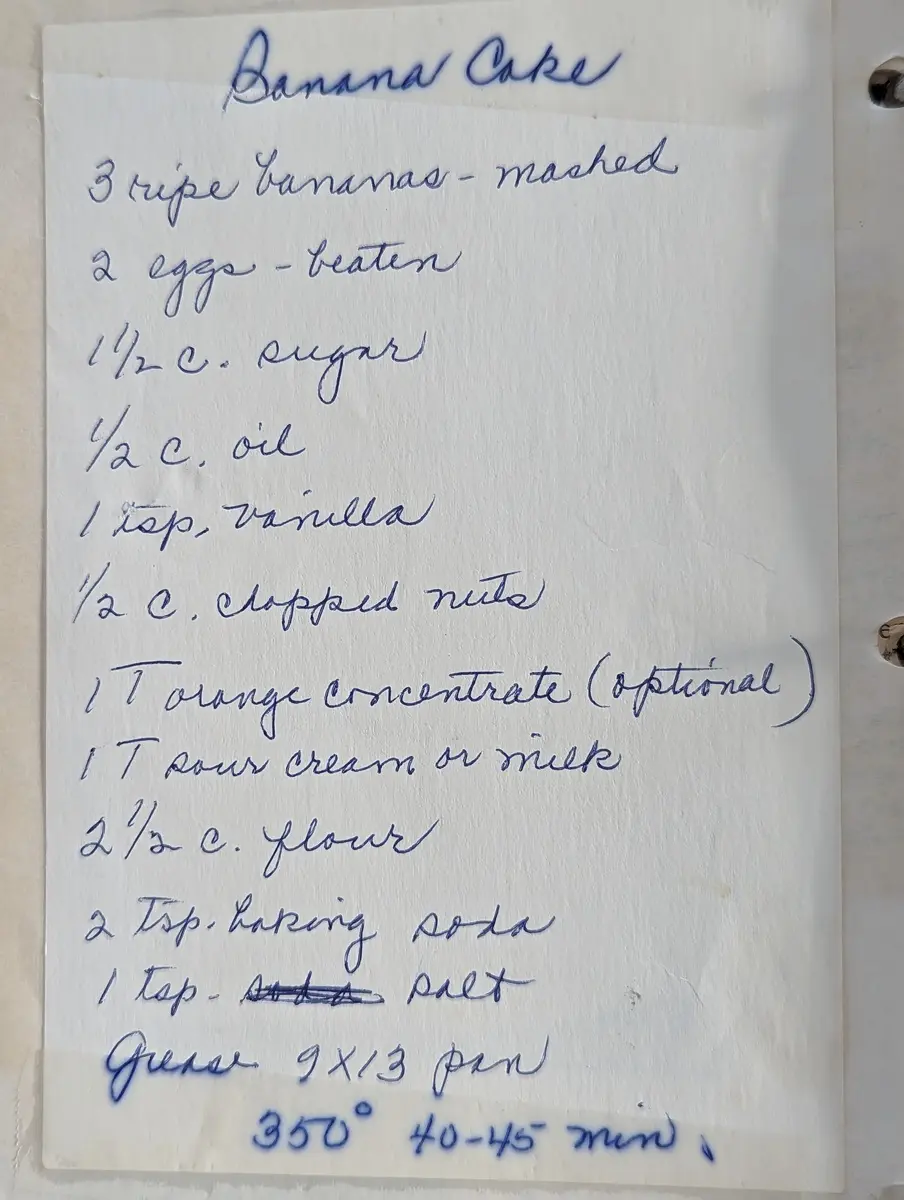 Banana Cake
3 ripe bananas - mashed
2 eggs - beaten
1 1/2 c. sugar
1/2 c. oil
1 tsp. vanilla
1/2 c. chopped nuts
1 T orange concentrate (optional)
1 T sour cream or milk
2 1/2 c. flour
2 tsp. baking soda
1 tsp. soda salt
Grease 9X13 pan
350° 40-45 min.